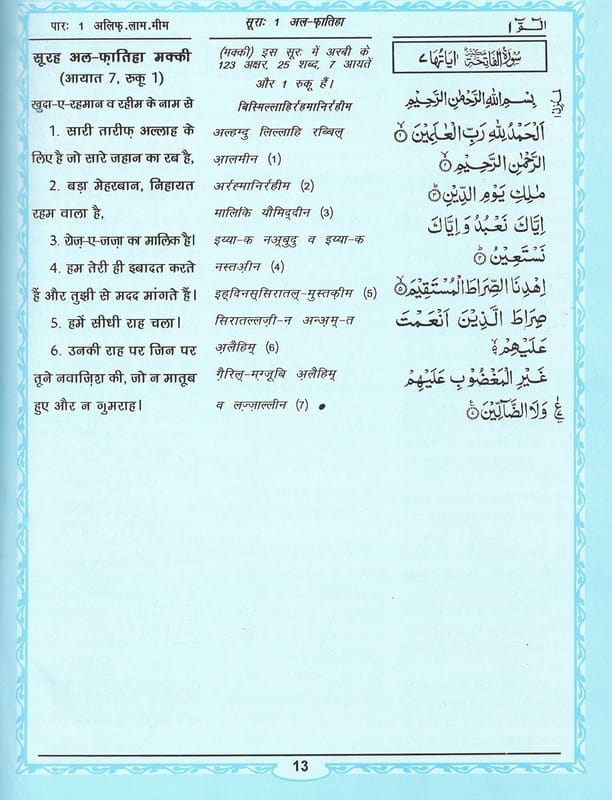 पारः 1 अलिफ़.लाम.मीम
सूराः 1 अल-फ़ातिहा
सूरह अल-फ़ातिहा मक्की
(आयात 7, रुकू 1)
ख़ुदा-ए-रहमान व रहीम के नाम से
1. सारी तारीफ़ अल्लाह के
लिए है जो सारे जहान का रब है,
2. बड़ा मेहरबान, निहायत
रहम वाला है,
3. रोज़-ए-जज़ा का मालिक है।
4. हम तेरी ही इबादत करते
हैं और तुझी से मदद मांगते हैं।
5. हमें सीधी राह चला।
6. उनकी राह पर जिन पर
तूने नवाज़िश की, जो न मातूब
हुए और न गुमराह।
(मक्की) इस सूरः में अरबी के
123 अक्षर, 25 शब्द, 7 आयतें
और 1 रुकू हैं।
बिस्मिल्लाहिर्रहमानिर्रहीम
अल्हम्दु लिल्लाहि रब्बिल्
आ़लमीन (1)
अर्रहमानिर्रहीम (2)
मालिकि यौमिद्दीन (3)
इय्या-क नअ़्बुदु व इय्या-क
नस्तअ़ीन (4)
इह्दिनस्सिरातल्-मुस्तक़ीम (5)
सिरातल्लज़ी-न अन्अ़म्-त
अ़लैहिम् (6)
ग़ैरिल्-मग़्ज़ूबि अ़लैहिम्
व लज़्ज़ाल्लीन (7)
سُوْرَةُ الْفَاتِحَةِ مَكِّيَّةٌ اٰيَاتُهَا ٧
بِسْمِ اللهِ الرَّحْمٰنِ الرَّحِيْمِ
اَلْحَمْدُ لِلّٰهِ رَبِّ الْعٰلَمِيْنَ ١
الرَّحْمٰنِ الرَّحِيْمِ ٢
مٰلِكِ يَوْمِ الدِّيْنِ ٣
اِيَّاكَ نَعْبُدُ وَ اِيَّاكَ
نَسْتَعِيْنُ ٤
اِهْدِنَا الصِّرَاطَ الْمُسْتَقِيْمَ ٥
صِرَاطَ الَّذِيْنَ اَنْعَمْتَ
عَلَيْهِمْ ٦
غَيْرِ الْمَغْضُوْبِ عَلَيْهِمْ
وَلَا الضَّآلِّيْنَ ٧
13